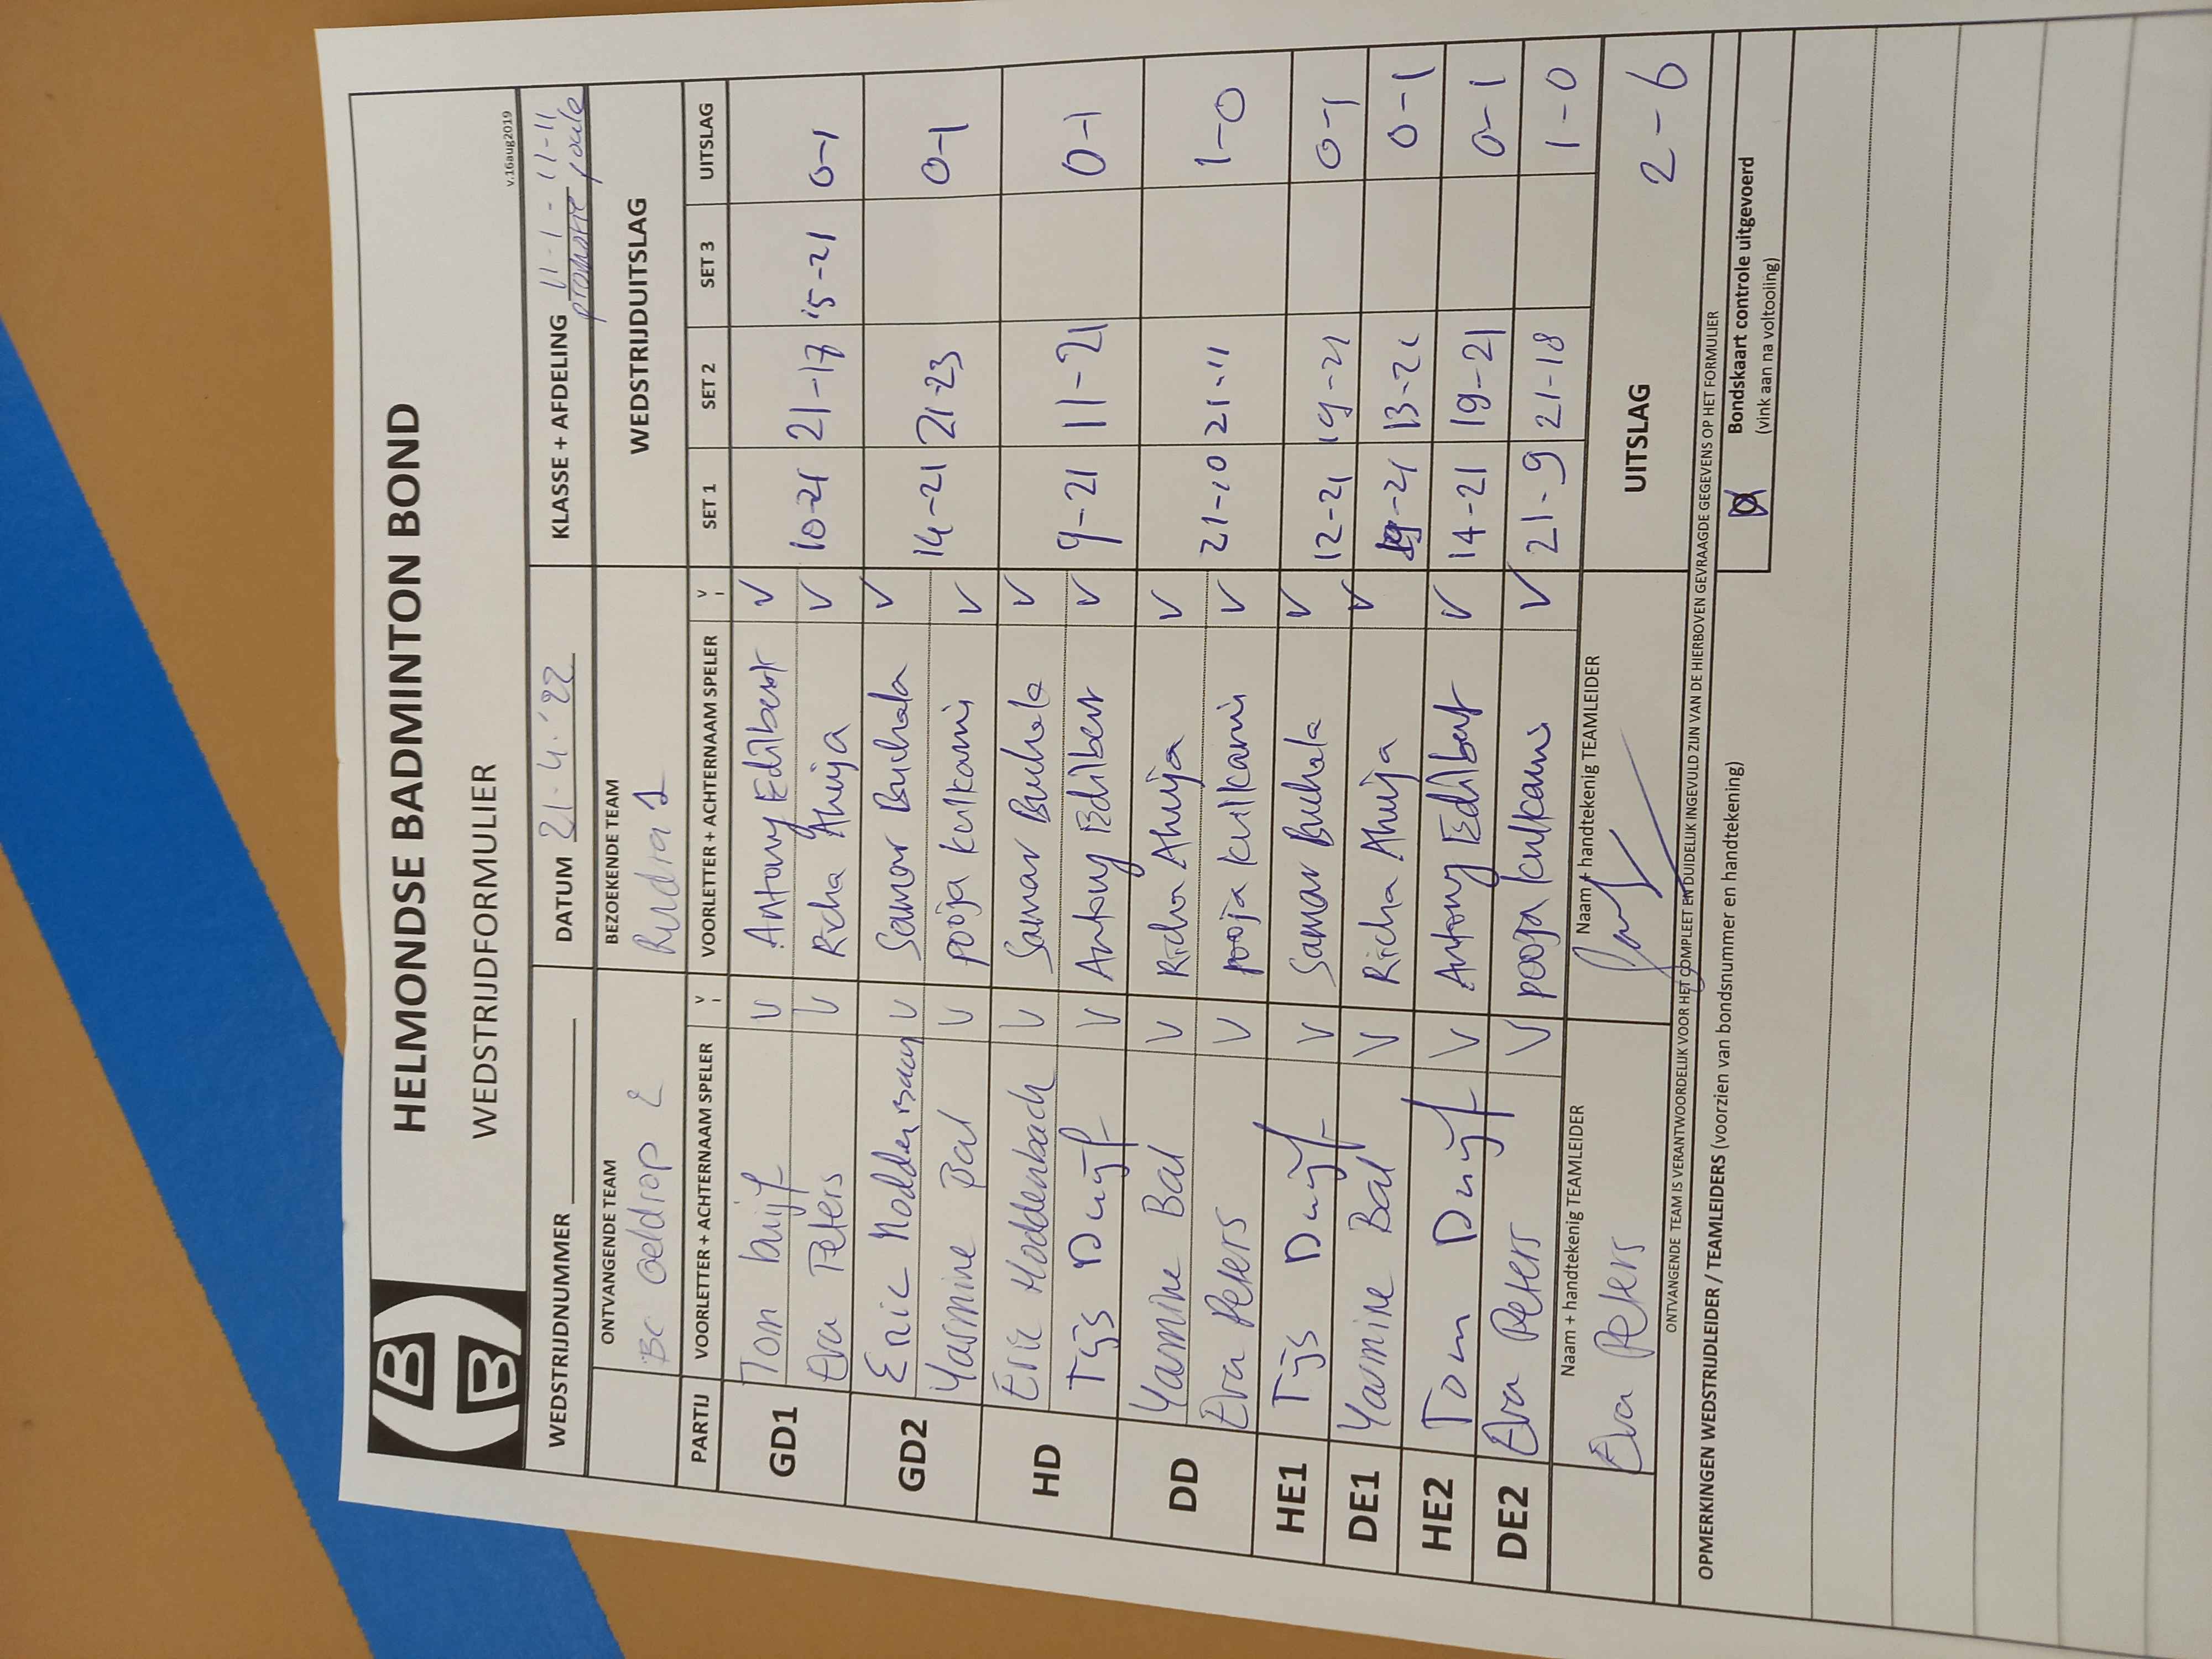 HELMONDSE BADMINTON BOND
WEDSTRIJDFORMULIER
v.16aug2019
WEDSTRIJDNUMMER
DATUM 21-4-'22
KLASSE + AFDELING
promotie poule
ONTVANGENDE TEAM
BC Geldrop 2
BEZOEKENDE TEAM
Rudra 1
WEDSTRIJDUITSLAG
PARTIJ VOORLETTER + ACHTERNAAM SPELER V VOORLETTER + ACHTERNAAM SPELER V SET 1 SET 2 SET 3 UITSLAG
GD1 Tom Duijf V Antony Edilbert V
Eva Peters V Richa Ahuja V 10-21 21-17 15-21 0-1
GD2 Eric Hoddenbach V Samar Buchala V
Yasmine Bal V pooja kulkarni V 14-21 21-23 0-1
HD Eric Hoddenbach V Samar Buchala V
Tijs Duijf V Antony Edilbert V 9-21 11-21 0-1
DD Yasmine Bal V Richa Ahuja V
Eva Peters V pooja kulkarni V 21-10 21-11 1-0
HE1 Tijs Duijf V Samar Buchala V 12-21 19-21 0-1
DE1 Yasmine Bal V Richa Ahuja V -21 13-21 0-1
HE2 Tom Duijf V Antony Edilbert V 14-21 19-21 0-1
DE2 Eva Peters V pooja kulkarni V 21-9 21-18 1-0
Naam + handtekenig TEAMLEIDER
Eva Peters
Naam + handtekenig TEAMLEIDER
UITSLAG 2-6
ONTVANGENDE TEAM IS VERANTWOORDELIJK VOOR HET COMPLEET EN DUIDELIJK INGEVULD ZIJN VAN DE HIERBOVEN GEVRAAGDE GEGEVENS OP HET FORMULIER
OPMERKINGEN WEDSTRIJDLEIDER / TEAMLEIDERS (voorzien van bondsnummer en handtekening)
Bondskaart controle uitgevoerd
(vink aan na voltooling)